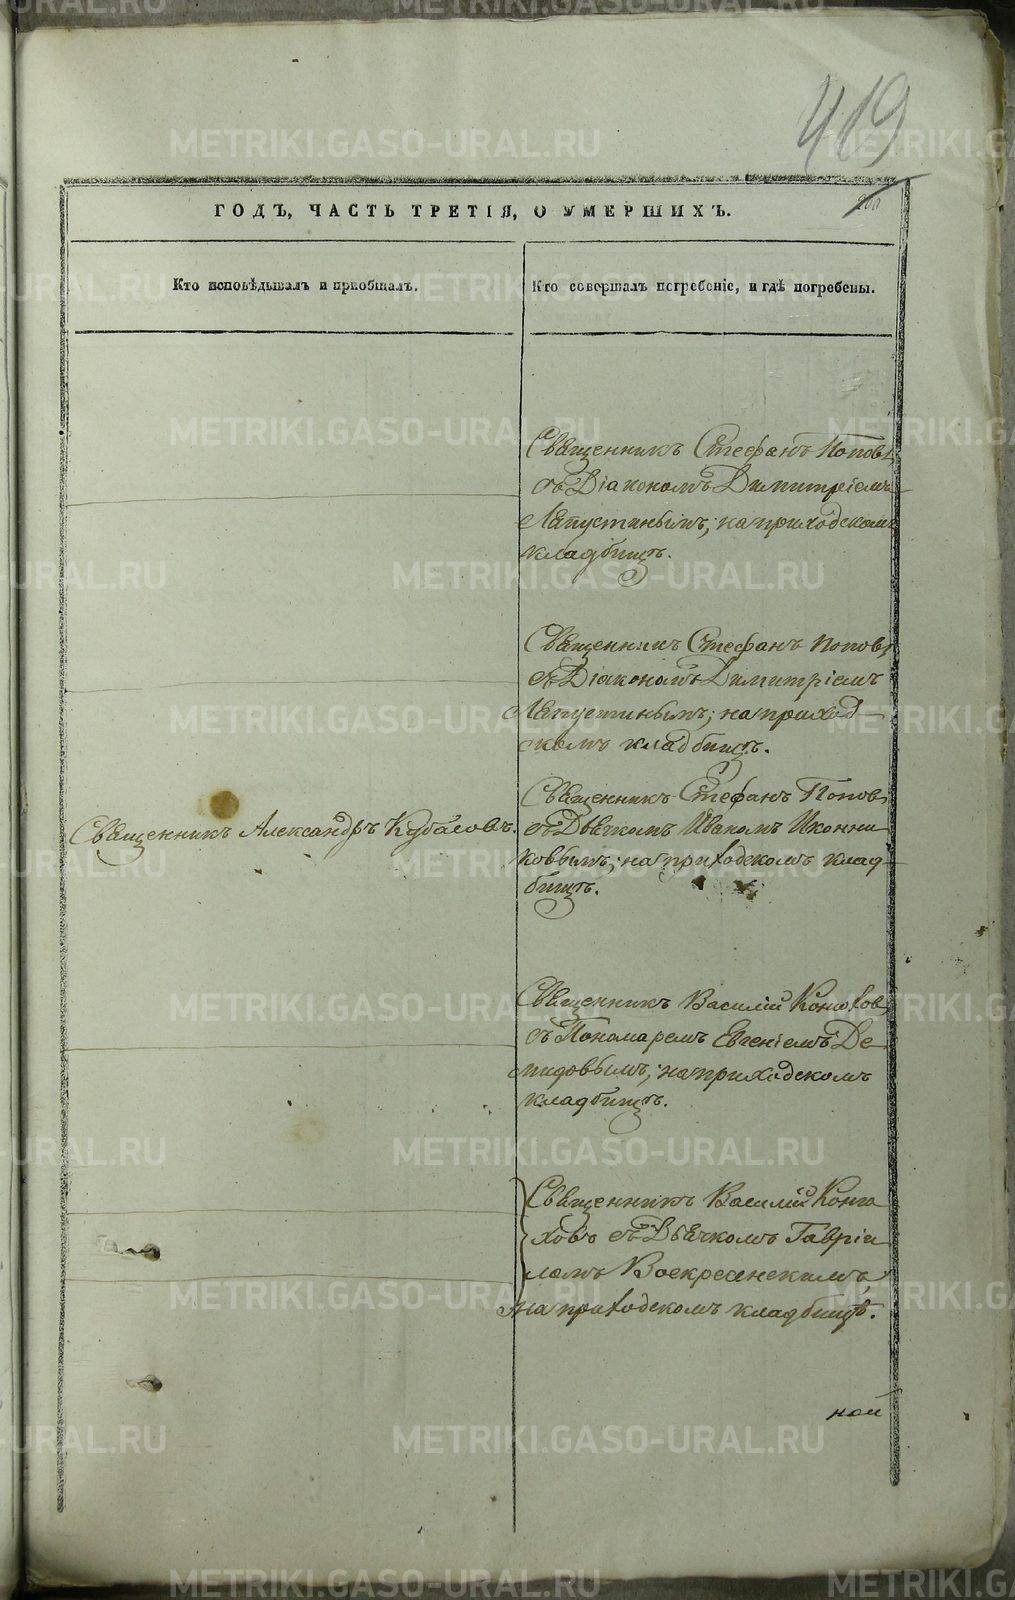 419
260
ГОДЪ, ЧАСТЬ ТРЕТІЯ, О УМЕРШИХЪ.
Кто исповѣдывалъ и пріобщалъ.
Кто совершалъ погребеніе, и гдѣ погребены.
Священникъ Стефанъ Поповъ
съ Діакономъ Димитріемъ
Лапустинымъ; на приходскомъ
кладбищѣ.
Священникъ Стефанъ Поповъ
съ Діакономъ Димитріемъ
Лапустинымъ; на приход
скомъ кладбищѣ.
Священникъ Александръ Кубасовъ.
Священникъ Стефанъ Поповъ
съ Дьячкомъ Иваномъ Иконни
ковымъ; на приходскомъ клад
бищѣ.
Священникъ Василій Конюховъ
съ Пономаремъ Евгеніемъ Де
мидовымъ; на приходскомъ
кладбищѣ.
Священникъ Василій Коню
ховъ съ Дьячкомъ Гавріи
ломъ Воскресенскимъ
на приходскомъ кладбищѣ.
ной
METRIKI.GASO-URAL.RU